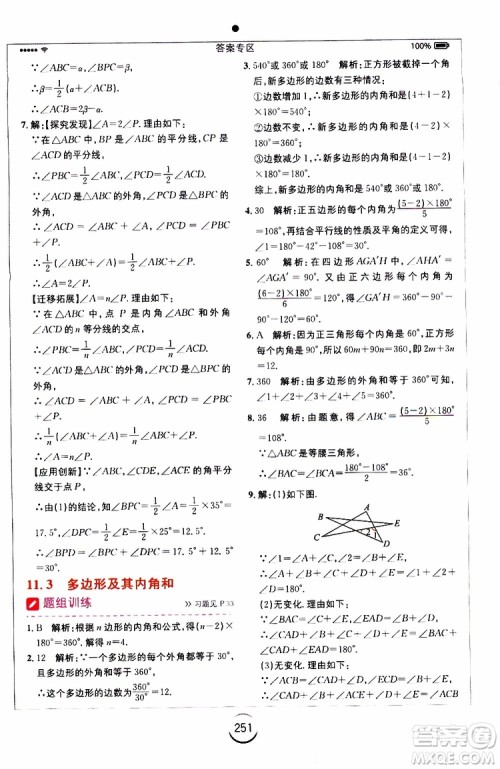 答案专区
100%
∵∠ABC=α,∠BPC=β,
∴β=1/2(α-β),∴β=1/3α,
∴∠BPC=1/3∠ABC.
7.解:【探究发现】∠A=2∠P.证明如下:
∵在△ABC中,BP是∠ABC的平分线,CP是
∠ACD的平分线,
∴∠PBC=1/2∠ABC,∠PCD=1/2∠ACD.
∵∠ACD是△ABC的外角,∠PCD是△BPC的
外角,
∴∠ACD=∠ABC+∠A,∠PCD=∠PBC
+∠P.
∴1/2∠ACD=1/2∠ABC+∠P.
∴1/2(∠ABC+∠A)=1/2∠ABC+∠P.
∴∠A=2∠P.
【迁移拓展】∠A=n∠P.证明如下:
∵在△ABC中,点P是内角∠ABC和外角
∠ACD的n等分线的交点,
∴∠PBC=1/n∠ABC,∠PCD=1/n∠ACD.
∵∠ACD是△ABC的外角,∠PCD是△BPC的
外角,
∴∠ACD=∠ABC+∠A,∠PCD=∠PBC
+∠P.
∴1/n∠ACD=1/n∠ABC+∠P.
∴1/n(∠ABC+∠A)=1/n∠ABC+∠P.
∴∠A=n∠P.
【应用创新】∵∠ABC,∠CDE,∠ACE的角平分
线交于点P,
∴由(1)的结论,知∠BPC=1/2∠A=1/2×35°=
17.5°,∠DPC=1/2∠E=1/2×25°=12.5°,
∴∠BPD=∠BPC+∠DPC=17.5°+12.5°
=30°.
11.3 多边形及其内角和
题组训练
>>习题见P33
1.B 解析:根据n边形的内角和公式,得(n-2)·
180°=360°,解得n=4.
2.12 解析:∵一个多边形的每个内角都等于150°,
且多边形的内角与外角互补,
∴这个多边形的边数为360°/30°=12.
3.540°或360°或180° 解析:正方形被截掉一个角
后,新多边形的边数有三种情况:
①边数增加1,∴新多边形的内角和是(4+1-2)
×180°=540°;
②边数不变,∴新多边形的内角和是(4-2)×180°
=360°;
③边数减少1,∴新多边形的内角和是(4-1-2)
×180°=180°.
综上,新多边形的内角和是540°或360°或180°.
4.30 解析:正五边形的每个内角为(5-2)×180°/5
=108°,再结合平行线的性质及平角的定义可得,
∠1=180°-108°-42°=30°.
5.60° 解析:在四边形AGA′H中,∠AHA′=
∠AGA′=90°,又由正六边形的内角为
(6-2)×180°/6=120°,∴∠GA′H=360°-
∠AGA′-∠AHA′-∠A=60°.
6.A 解析:因为正三角形每个内角为60°,正方形
每个内角为90°,所以60m+90n=360,即2m+3n
=12.
7.360 解析:由多边形的外角和等于360°可知,
∠1+∠2+∠3+∠4+∠5=360°.
8.36 解析:由题意,得∠ABC=(5-2)×180°/5=
108°.∵AB=BC,∴△ABC是等腰三角形,
∴∠BAC=180°-108°/2=36°.
9.解:(1)如图.
A
B
C
D
E
1
2
∵∠1=∠2+∠D=∠B+∠E+∠D,∠1+∠A
+∠C=180°,
∴∠A+∠B+∠C+∠D+∠E=180°.
(2)无变化.理由如下:
∵∠BAC=∠C+∠E,∠EAD=∠B+∠D,
∴∠CAD+∠B+∠C+∠D+∠E=∠BAC+
∠CAD+∠EAD=180°.
(3)无变化.理由如下:
∵∠ACB=∠CAD+∠D,∠ECD=∠B+∠E,
∴∠CAD+∠B+∠ACE+∠D+∠E=∠ACB
+∠ACE+∠ECD=180°.
251
答案圈
MXQE.COM